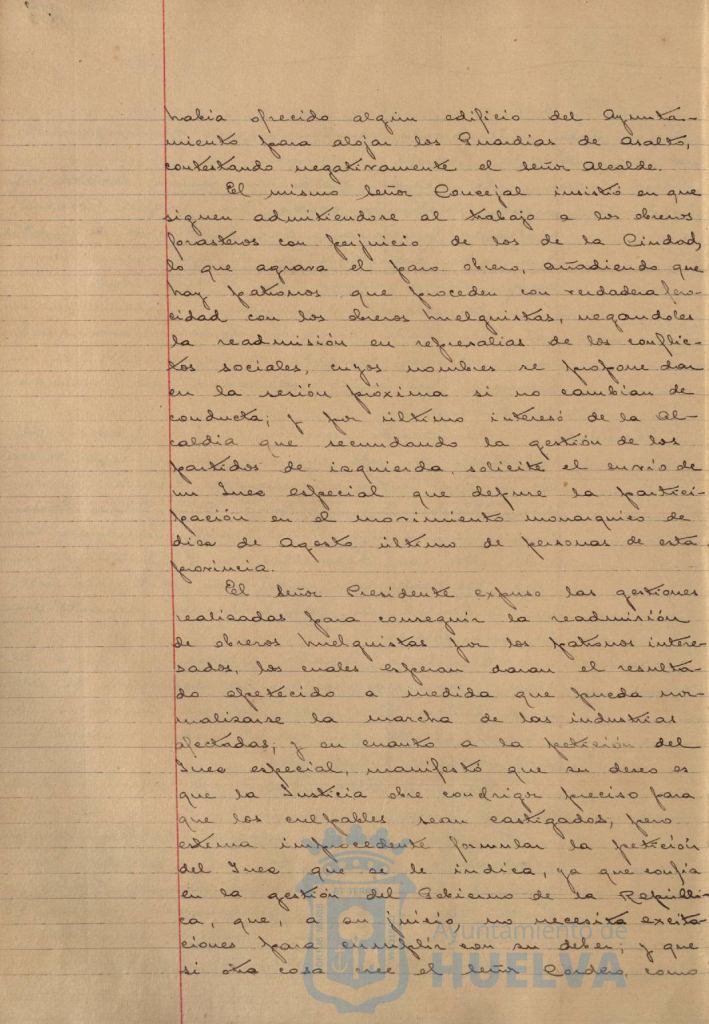 había ofrecido algún edificio del Ayunta-
miento para alojar los Guardias de Asalto,
contestando negativamente el Señor Alcalde.
El mismo Señor Concejal insistió en que
siguen admitiendose al trabajo a los obreros
forasteros con perjuicio de los de la Ciudad,
lo que agrava el paro obrero, añadiendo que
hay patronos que proceden con verdadera fero-
cidad con los obreros huelguistas, negandoles
la readmisión en represalias de los conflic-
tos sociales, cuyos nombres se propone dar
en la sesión próxima si no cambian de
conducta; y por último interesó de la Al-
caldia que secundando la gestión de los
partidos de izquierda, solicite el envio de
un Juez especial que depure la partici-
pación en el movimiento monarquico de
diez de Agosto último de personas de esta
provincia.
El Señor Presidente expuso las gestiones
realizadas para conseguir la readmisión
de obreros huelguistas por los patronos intere-
sados, los cuales esperan daran el resulta-
do apetecido a medida que pueda nor-
malizarse la marcha de las industrias
afectadas; y en cuanto a la petición del
Juez especial, manifestó que su deseo es
que la Justicia obre con rigor preciso para
que los culpables sean castigados, pero
estima improcedente formular la petición
del Juez que se le indica, ya que confía
en la gestión del Gobierno de la Repúbli-
ca, que, a su juicio, no necesita excita-
ciones para cumplir con su deber; y que
si otra cosa cree el Señor Cordero, como
Ayuntamiento de
HUELVA